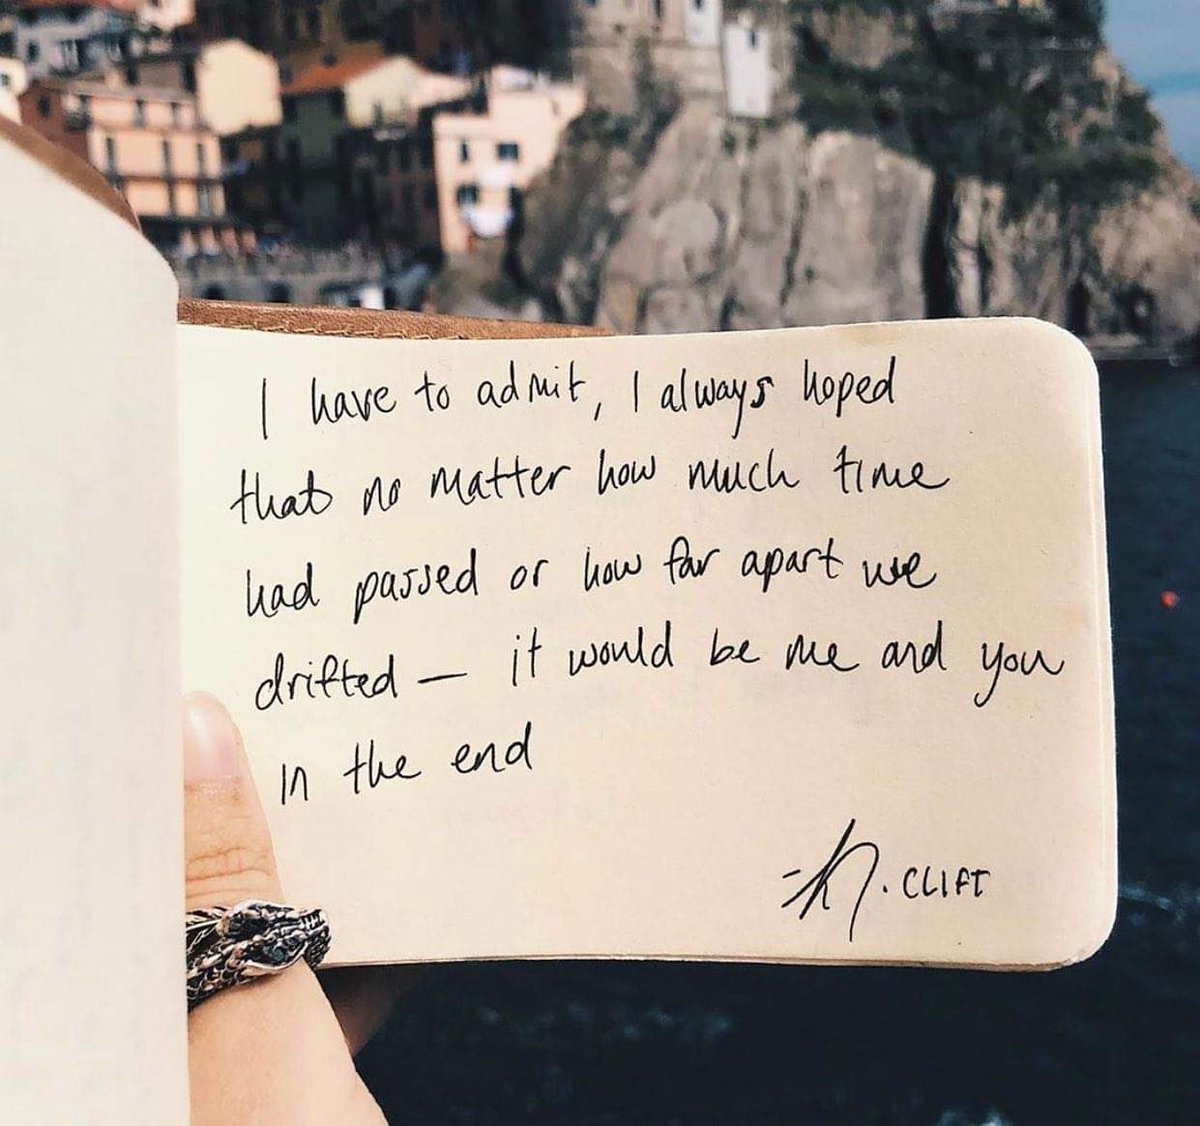 I have to admit, I always hoped
that no matter how much time
had passed or how far apart we
drifted — it would be me and you
in the end
N. CLIFT